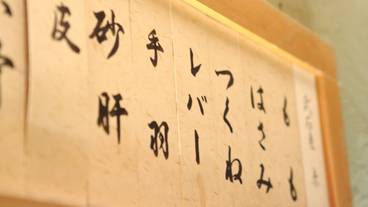 もも
はさみ
つくね
レバー
手羽
砂肝
皮